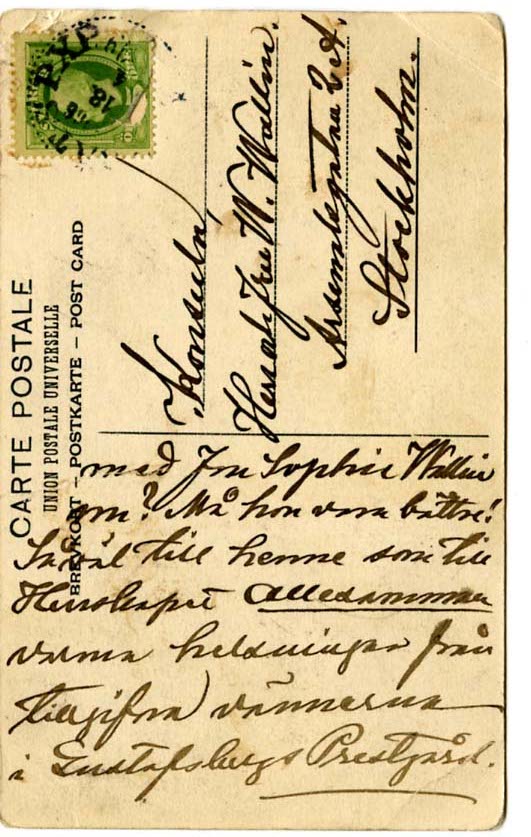 CARTE POSTALE
UNION POSTALE UNIVERSELLE
BREVKORT – POSTKARTE – POST CARD
PXP
18
Konsuln
Herr och Fru W. Wallin.
Arsenalsgatan 2 A.
Stockholm.
med Fru Sophie Wallin
om? Må hon vara bättre!
Såväl till henne som till
Herrskapet Allesamman
varma helsningar från
tillgifna vännerna
i Gustafsbergs Prestgård.